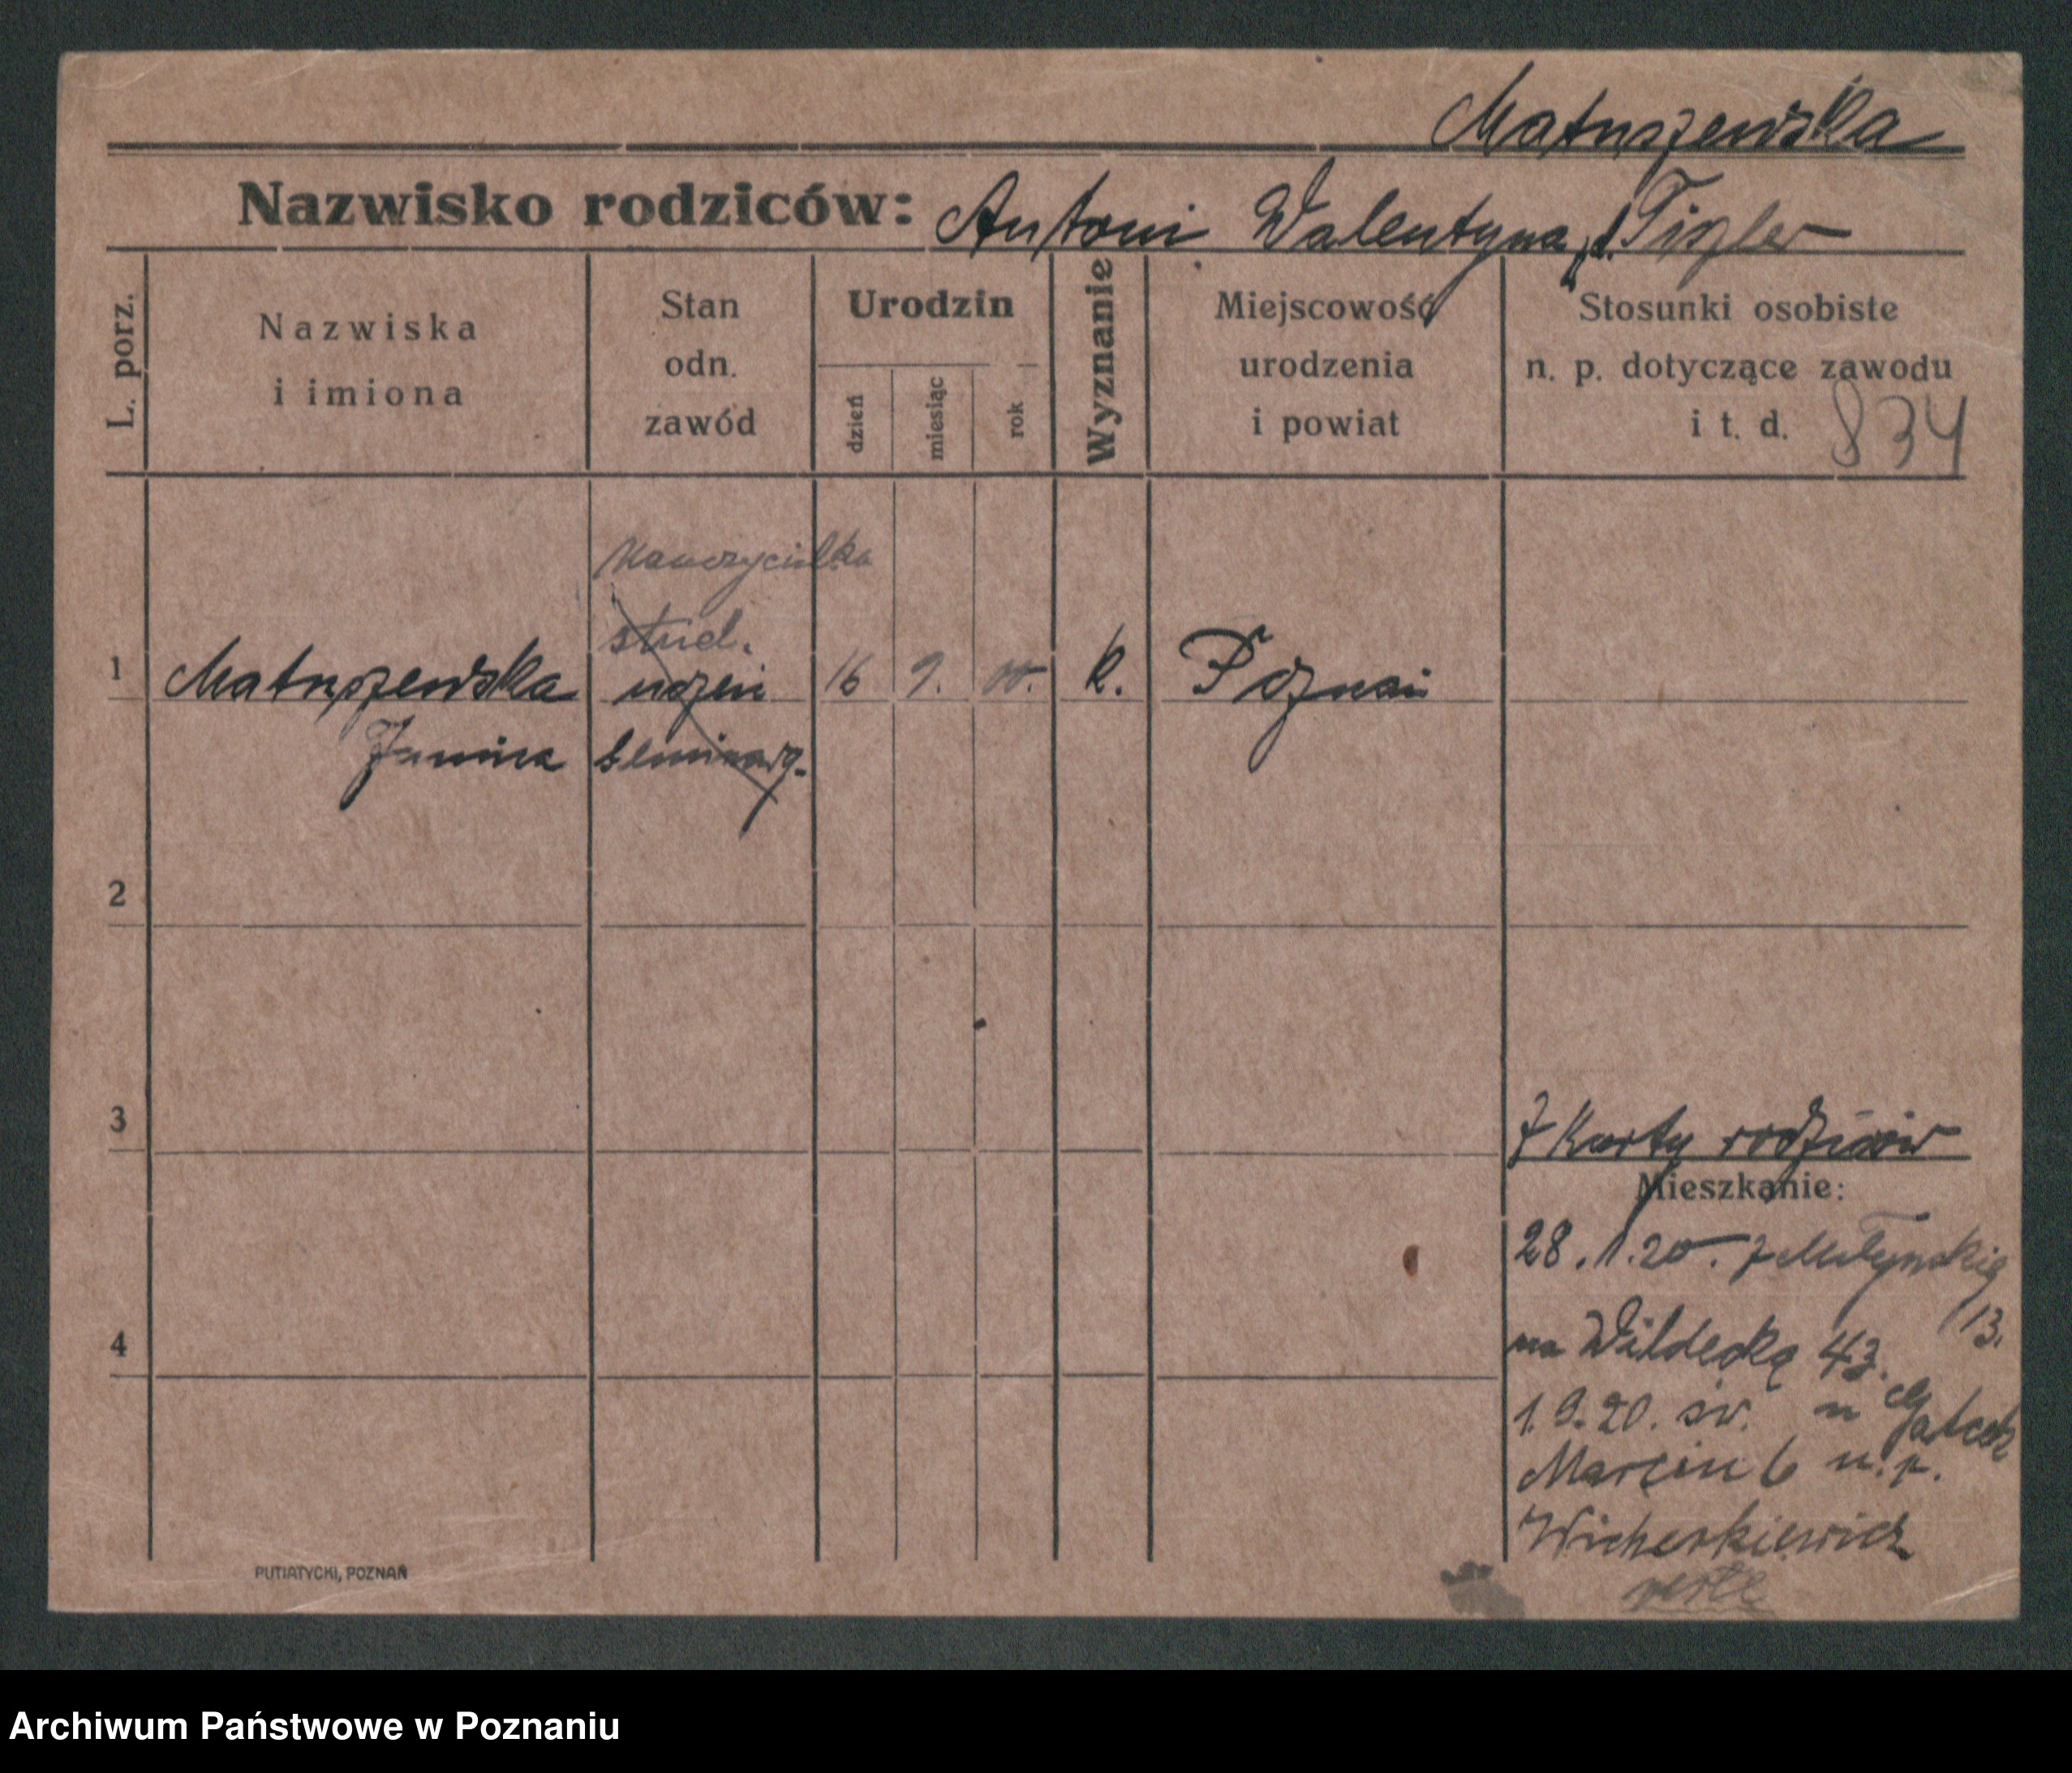 Matuszewska
Nazwisko rodziców: Antoni Walentyna
L. porz.
Nazwiska i imiona
Stan odn. zawód
Urodzin
dzień
miesiąc
rok
Wyznanie
Miejscowość urodzenia i powiat
Stosunki osobiste n. p. dotyczące zawodu i t. d.
834
Nauczycielka
stud.
1 Matuszewska uczen 16 9. 00. k. Poznań
Janina seminarz.
2
3
z Karty rodziców
Mieszkanie:
28.1.20. z Młyńskiej
13.
4
na Wildecką 43.
1.9.20. św. u
Marcin 6 u. p.
Wicherkiewicz
PUTIATYCKI, POZNAŃ
Archiwum Państwowe w Poznaniu